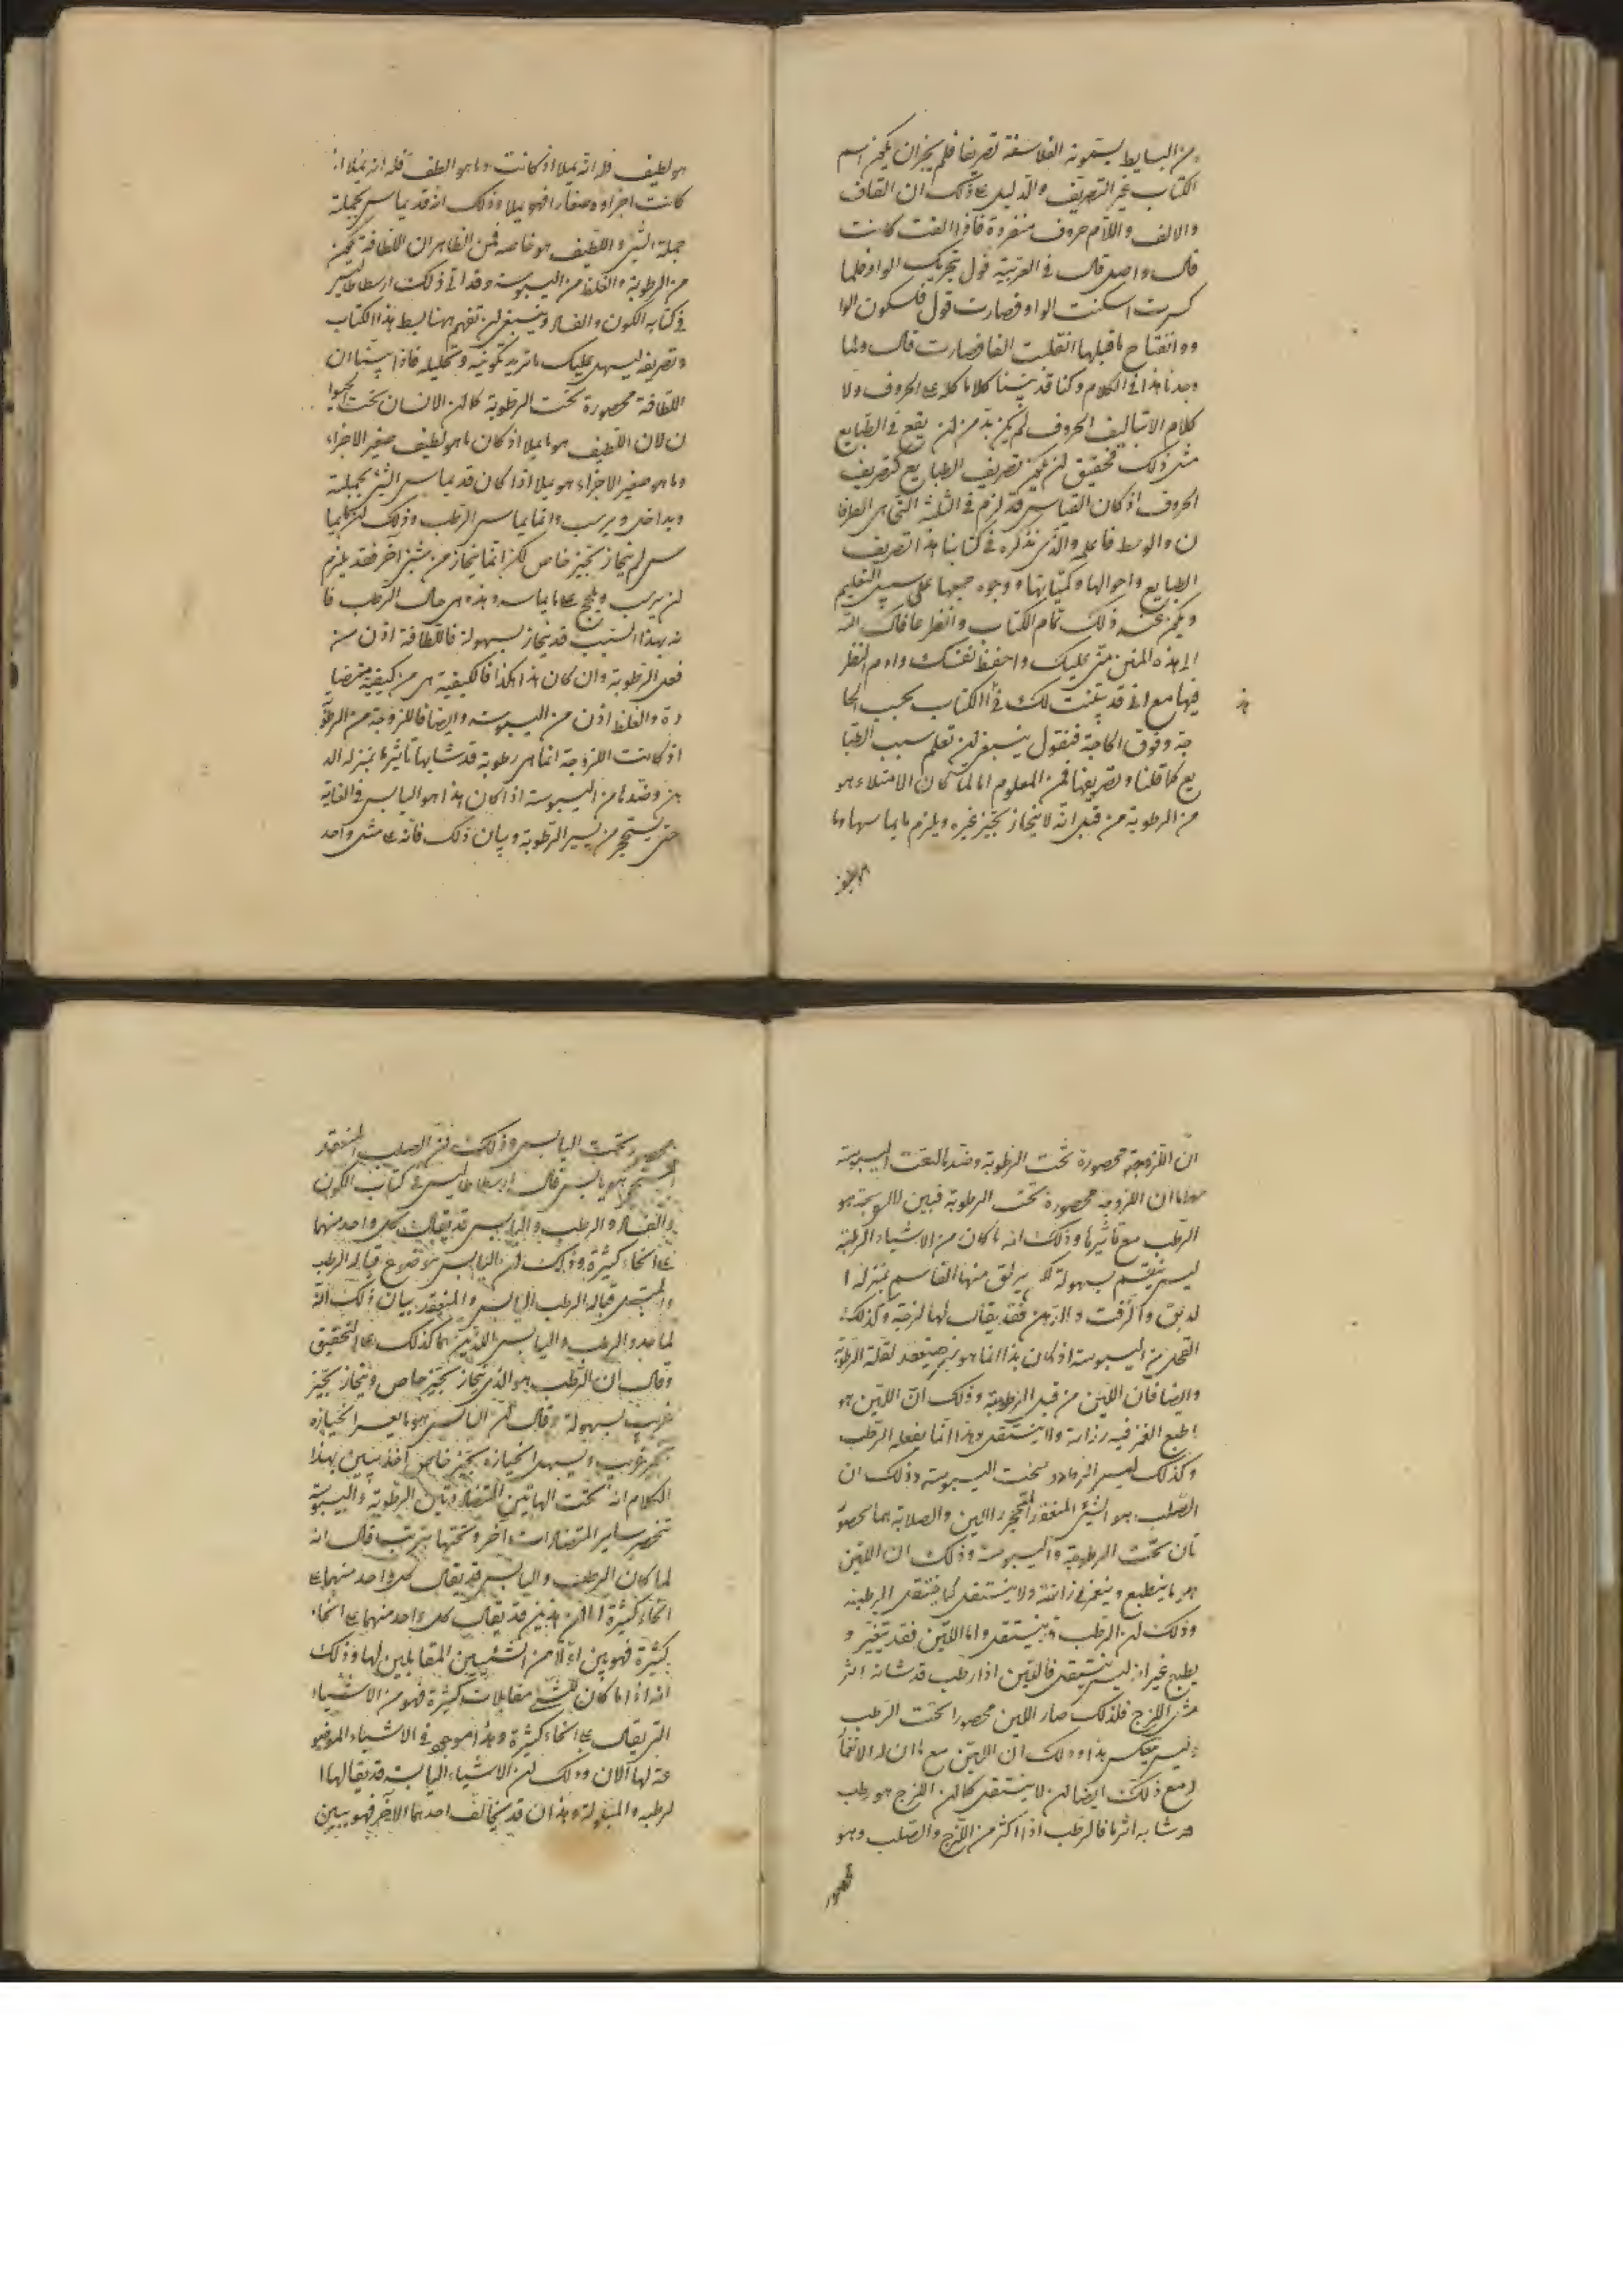 من البسايط يسمونه الفلاسفة تصريفا فلم يجز ان يكون اسم
الكتاب غير التصريف والدليل على ذلك ان القاف
والالف واللام حروف منفردة فاذا الفت كانت
قال واصل قال في العربية قول بتحريك الواو فلما
كسرت اسكنت الواو فصارت قول فسكون الوا
وو انفتاح ماقبلها انقلبت الفا فصارت قال ولما
وجدنا هذا في الكلام وكنا قد بيّنا كلاما كله على الحروف ولا
كلام الا بتاليف الحروف لم يكن بد من ان يقع في الطبايع
مثل ذلك فحقيق ان يكون تصريف الطبايع كتصريف
الحروف اذ كان القياس قد لزم في الثلثة التي هي الطرفا
ن والوسط فاعلمه والذي نذكره في كتابنا هذا تصريف
الطبايع واحوالها وكمياتها ووجوه جمعها على سبيل التعليم
ويكون عند ذلك تمام الكتاب وانظر عافاك الله
الى هذه المنن منّي عليك واحفظ نفسك وادم النظر
فيها مع اني قد بيّنت لك في الكتاب بحسب الحا
هذا
جة وفوق الحاجة فنقول ينبغي ان تعلم سبب الطبا
يع كما قلنا وتصريفها فمن المعلوم اما لما كان الامتلاء هو
من الرطوبة من قبل انه لا ينحاز بحيز غيره ويلزم ما يماسها وما
هو لطيف
هو لطيف فله انه يملا اذ كانت وما هو الطف فله انه يملا اذ
كانت اجزاؤه صغارا فهو يملا وذلك انه قد يماس بجملته
جملة الشي واللطيف هو خاصه فمن الظاهر ان اللطافة تكون
من الرطوبة والغلظ من اليبوسة وقد اتى ذلك ارسطاطاليس
في كتابه الكون والفساد وينبغي ان تفهم ههنا بسط هذا الكتاب
وتصريفه ليسهل عليك ما تريد تكوينه وتحليله فاذا بيّنا ان
اللطافة محصورة تحت الرطوبة كما ان الانسان تحت الحيوا
ن لان اللطيف هو ما يملا اذ كان ما هو لطيف صغير الاجزاء
وما هو صغير الاجزاء هو يملا اذا كان قد يماس الشي بجملته
ويداخل ويرسب وانما يماس الرطب وذلك ان كل ما
س لم ينحاز بحيز خاص لكن انما ينحاز من شي آخر فقد يلزم
ان يرسب ويلج على ما يماسه وهذه هي حال الرطب فا
نه بهذا السبب قد ينحاز بسهولة فاللطافة اذن من
فعل الرطوبة وان كان هذا هكذا فالكيفية هي من كيفية متضا
دة والغلظ اذن من اليبوسة وايضا فاللزوجة من الرطوبة
اذ كانت اللزوجة انما هي رطوبة قد شابها تاثير ما بمنزلة الد
هن وضدها من اليبوسة اذ كان هذا هو اليابس في الغاية
حتى يستحجر من يسير الرطوبة وبيان ذلك فانه على مثل واحد
ان اللزوجة محصورة تحت الرطوبة وضدها تحت اليبوسة
اما ان اللزوجة محصورة تحت الرطوبة فبين لان اللزوجة هو
الرطب مع تاثير ما وذلك انه ما كان من الاشياء الرطبة
ليس ينقسم بسهولة لا يزلق منها القاسم بمنزلة ا
لدبق والزفت والدهن فقد يقال لها لزجة وكذلك
القحل من اليبوسة اذ كان هذا انما هو شي جف ينعقد لقلة الرطوبة
وايضا فان اللين من قبل الرطوبة وذلك ان اللين هو
ما طبع الغمز فيه رزانة ولا ينتقل وهذا انما يفعله الرطب
وكذلك تحت اليبوسة وذلك ان
الصلب هو الشي المنعقد المتحجر واللين والصلابة هما محصور
تان تحت الرطوبة واليبوسة وذلك ان اللين
هو ما ينطبع وينغمز في ذاته ولا ينتقل كما ينتقل الرطبة
وذلك ان الرطب قد ينتقل واما اللين فقد يتغير و
يطبع غير انه ليس ينتقل فاللين اذا رطب قد شابه اثر
مثل اللزج فلذلك صار اللين محصورا تحت الرطب
وليس ينعكس هذا وذلك ان اللين مع ما ان له الانغما
ز مع ذلك ايضا ان لا ينتقل كما ان اللزج هو رطب
قد شابه اثر ما فالرطب اذا اكثر من اللزج والصلب وهو
محصور
محصور تحت اليابس وذلك ان الصلب المنعقد
المستحجر هو يابس قال ارسطاطاليس في كتاب الكون
والفساد والرطب واليابس قد يقال كل واحد منهما
على انحاء كثيرة وذلك ان اليابس موضوع قبالة الرطب
والمبتل قبالة الرطب اليابس والمنعقد بيان ذلك انه
لما حدد الرطب واليابس اللذين هما كذلك على التحقيق
وقال ان الرطب هو الذي ينحاز بحيز خاص وينحاز بحيز
غريب بسهولة وقال ان اليابس هو ما يعسر انحيازه
بحيز غريب ويسهل انحيازه بحيز خاص اخذ يبين بهذا
الكلام انه تحت الهاتين المتضادتين الرطوبة واليبوسة
تنحصر ساير المتضادات الاخر وتحتها يترتب قال انه
لما كان الرطب واليابس قد يقال كل واحد منهما على
انحاء كثيرة اما ان هذين قد يقال كل واحد منهما على انحاء
كثيرة فهو بين اولا من الشيئين المقابلين لها وذلك
انه اذا ما كان للشي مقابلات كثيرة فهو من الاشياء
التي يقال على انحاء كثيرة وهذا موجود في الاشياء الموضو
عة لها الان وذلك ان الاشياء اليابسة قد يقالها ا
لرطبه والمبلولة وهذان قد يخالف احدهما الاخر فهو يبين